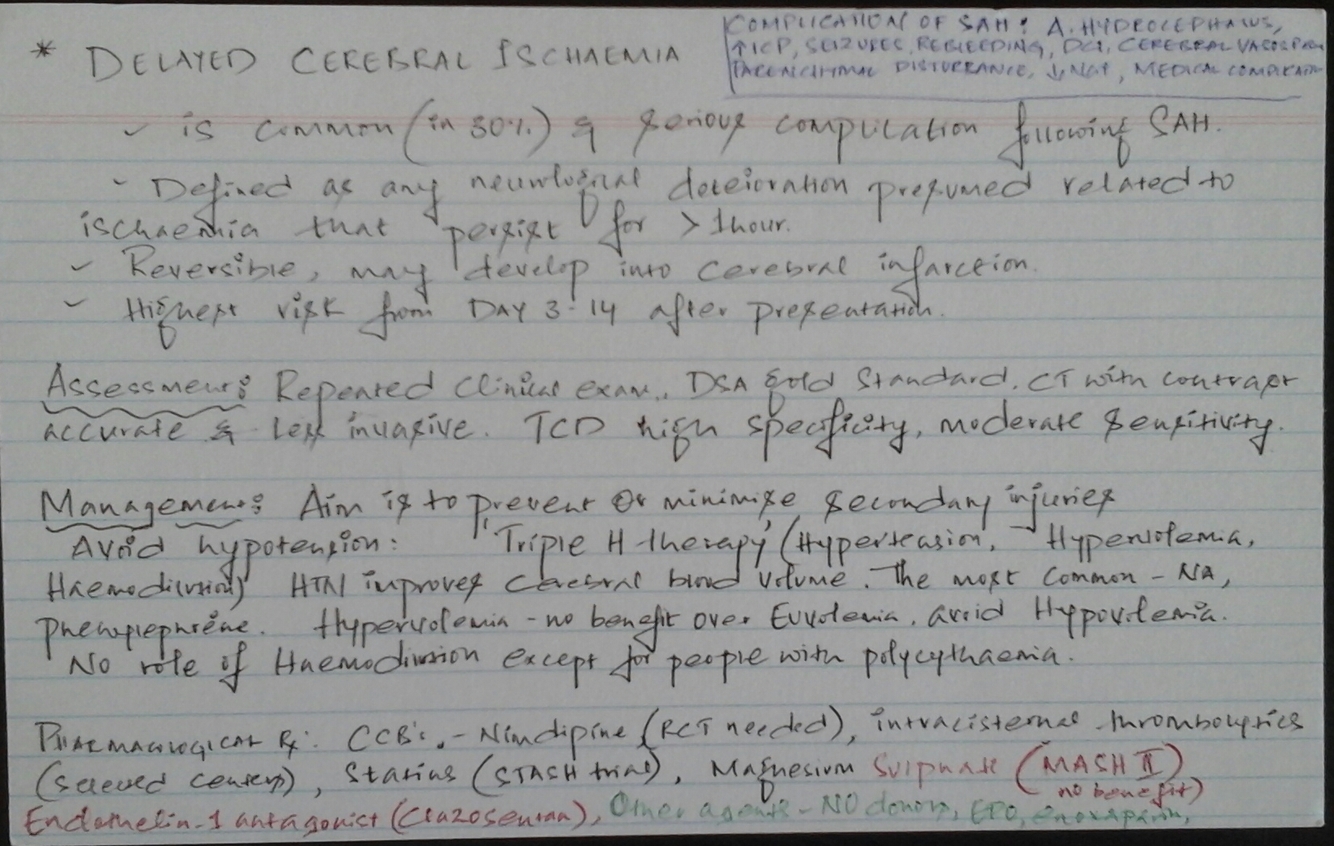 * DELAYED CEREBRAL ISCHAEMIA
COMPLICATION OF SAH: A. HYDROCEPHALUS,
↑ICP, SEIZURES, REBLEEDING, DCI, CEREBRAL VASOSPASM
PARENCHYMAL DISTURBANCE, ↓Na+, MEDICAL COMPLICATION
✓ is common (in 30%) & serious complication following SAH.
✓ Defined as any neurological deterioration presumed related to
ischaemia that persist for > 1hour.
✓ Reversible, may develop into cerebral infarction.
✓ Highest risk from DAY 3-14 after presentation.
Assessment: Repeated clinical exam., DSA gold standard. CT with contrast
accurate & less invasive. TCD high specificity, moderate sensitivity.
Management: Aim is to prevent or minimise secondary injuries
Avoid hypotension: 'Triple H therapy' (Hypertension, Hypervolemia,
Haemodilution) HTN improves cerebral blood volume. The most common - NA,
phenylephrine. Hypervolemia - no benefit over Euvolemia, avoid Hypovolemia.
No role of Haemodilution except for people with polycythaemia.
PHARMACOLOGICAL Rx: CCB's - Nimodipine (RCT needed), intracisternal thrombolytics
(selected centers), Statins (STASH trial), Magnesium Sulphate (MASH II
no benefit)
Endothelin-1 antagonist (Clazosentan), Other agents - NO donors, EPO, enoxaparin,